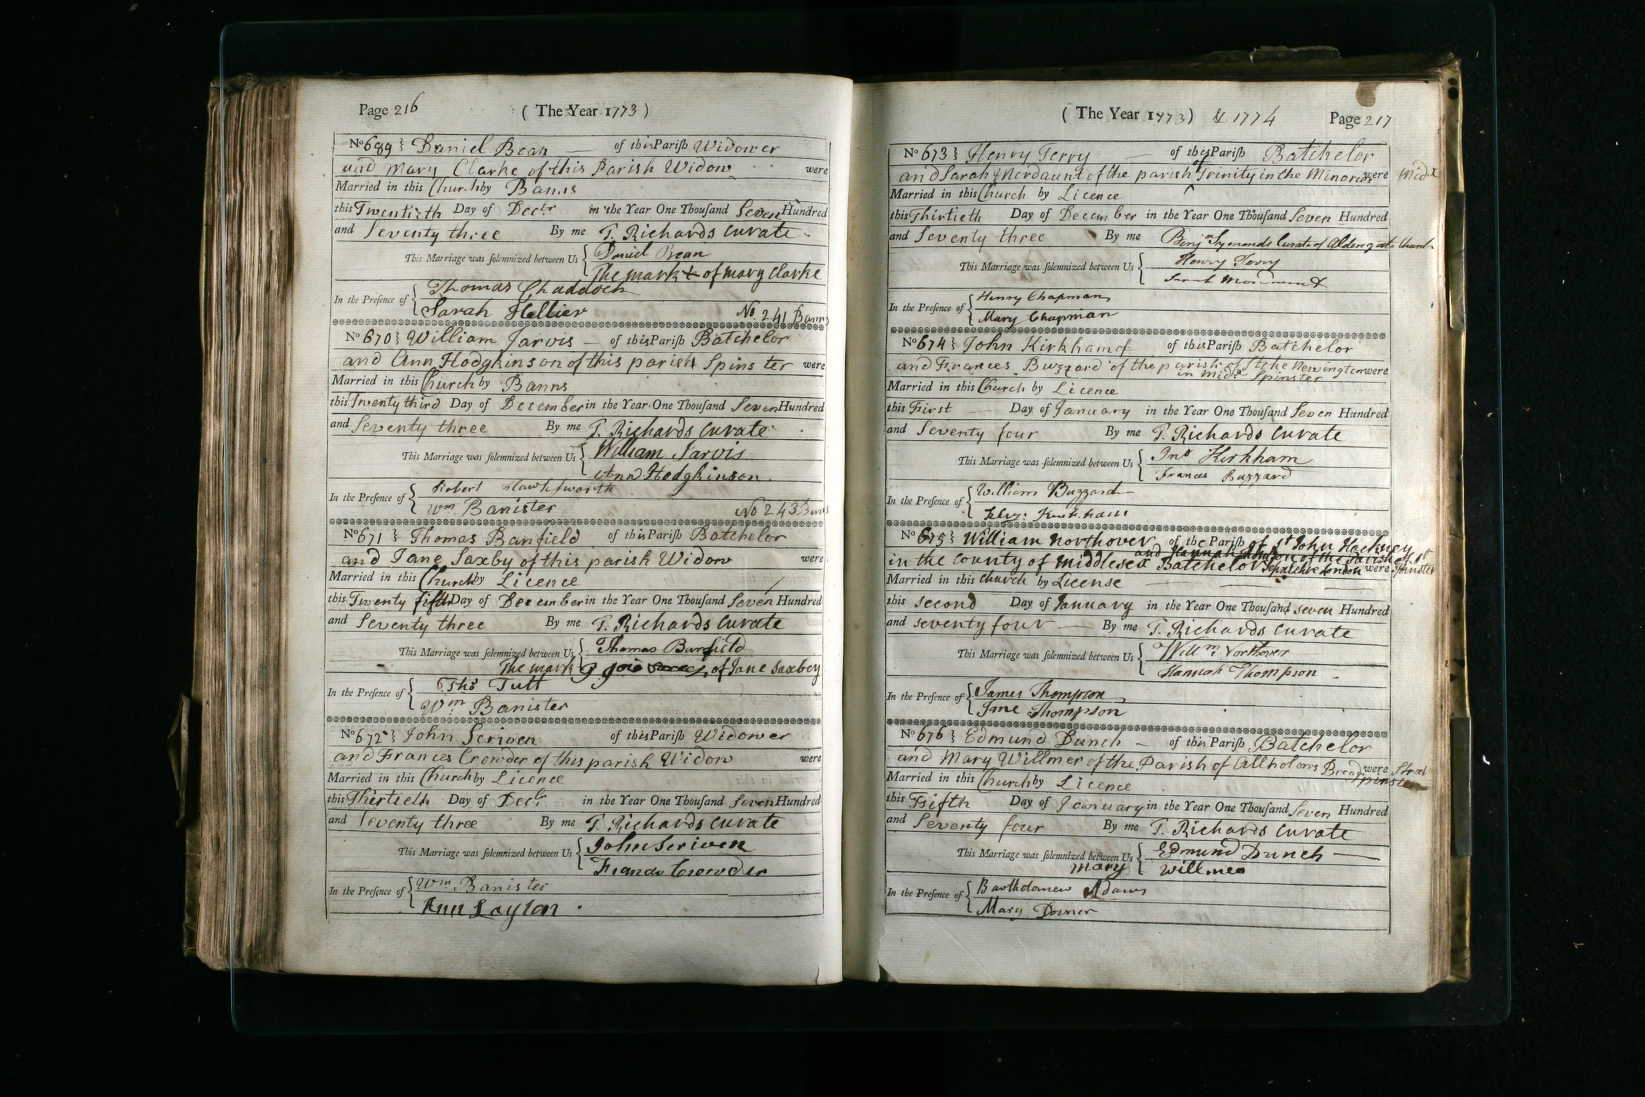 Page 216
( The Year 1773 )
No 689 } Daniel Bean — of this Parish Widower
and Mary Clarke of this Parish Widow were
Married in this Church by Banns
this Twentieth Day of Decbr in the Year One Thousand Seven Hundred
and Seventy three By me T. Richards Curate
This Marriage was solemnized between Us { Daniel Bean
The mark + of mary Clarke
In the Presence of { Thomas Chaddock
Sarah Hellier No 241 Banns
No 670 } William Jarvis — of this Parish Batchelor
and Ann Hodgkinson of this parish Spinster were
Married in this Church by Banns
this Twenty third Day of December in the Year One Thousand Seven Hundred
and Seventy three By me T. Richards Curate
This Marriage was solemnized between Us { William Jarvis
Ann Hodgkinson
In the Presence of { Robert Hawksworth
Wm Banister No 243 Banns
No 671 } Thomas Banfield of this Parish Batchelor
and Jane Saxby of this parish Widow were
Married in this Church by Licence
this Twenty fifth Day of December in the Year One Thousand Seven Hundred
and Seventy three By me T. Richards Curate
This Marriage was solemnized between Us { Thomas Banfield
The mark of Jane Saxbey
In the Presence of { Thos Tutt
Wm Banister
No 672 } John Scriven of this Parish Widower
and Frances Crowder of this parish Widow were
Married in this Church by Licence
this Thirtieth Day of Decbr in the Year One Thousand Seven Hundred
and Seventy three By me T. Richards Curate
This Marriage was solemnized between Us { John Scriven
Frances Crowder
In the Presence of { Wm Banister
Ann Layton
( The Year 1773 ) & 1774 Page 217
No 673 } Henry Terry — of this Parish Batchelor
and Sarah Mordaunt of the parish of Trinity in the Minories were Midx
Married in this Church by Licence
this Thirtieth Day of December in the Year One Thousand Seven Hundred
and Seventy three By me Benjn Symonds Curate of Aldersgate Church
This Marriage was solemnized between Us { Henry Terry
Sarah Mordaunt
In the Presence of { Henry Chapman
Mary Chapman
No 674 } John Kirkham of this Parish Batchelor
and Frances Buzzard of the parish of Stoke Newington were
in Midx Spinster
Married in this Church by Licence
this First Day of January in the Year One Thousand Seven Hundred
and Seventy four By me T. Richards Curate
This Marriage was solemnized between Us { Jno Kirkham
Frances Buzzard
In the Presence of { William Buzzard
Kirkham
No 675 } William Northover of the Parish of St John Hackney
in the County of Middlesex Batchelor and Hannah Thompson of the parish of St
Sepulchre London were Spinster
Married in this Church by License
this second Day of January in the Year One Thousand seven Hundred
and seventy four By me T. Richards Curate
This Marriage was solemnized between Us { Willm Northover
Hannah Thompson
In the Presence of { James Thompson
Jane Thompson
No 676 } Edmund Dunch — of this Parish Batchelor
and Mary Willmer of the Parish of Allhalows Bread Street were Spinster
Married in this Church by Licence
this Fifth Day of January in the Year One Thousand Seven Hundred
and Seventy four By me T. Richards Curate
This Marriage was solemnized between Us { Edmund Dunch
Mary Willmer
In the Presence of { Bartholomew Adams
Mary Dormer